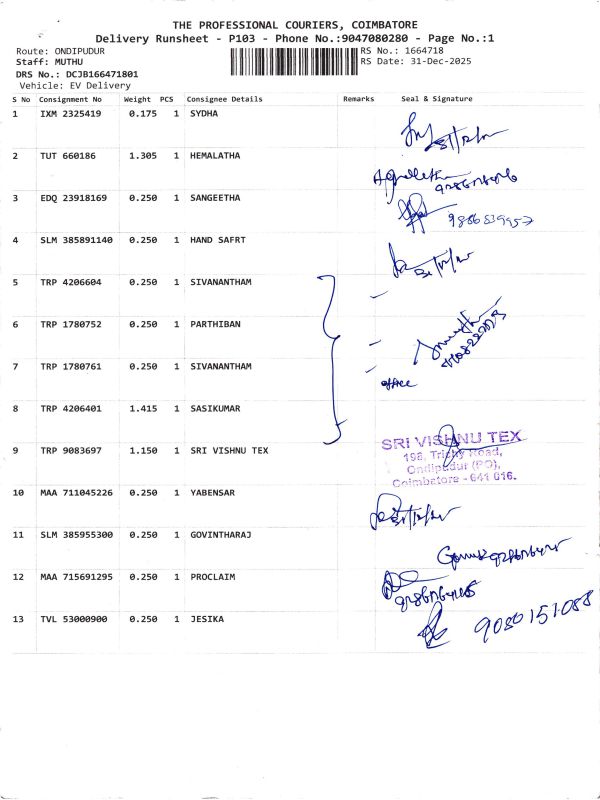 THE PROFESSIONAL COURIERS, COIMBATORE
Delivery Runsheet - P103 - Phone No.:9047080280 - Page No.:1
Route: ONDIPUDUR
RS No.: 1664718
Staff: MUTHU
RS Date: 31-Dec-2025
DRS No.: DCJB166471801
Vehicle: EV Delivery
S No Consignment No Weight PCS Consignee Details Remarks Seal & Signature
1 IXM 2325419 0.175 1 SYDHA
2 TUT 660186 1.305 1 HEMALATHA
3 EDQ 23918169 0.250 1 SANGEETHA
9886539957
4 SLM 385891140 0.250 1 HAND SAFRT
5 TRP 4206604 0.250 1 SIVANANTHAM
6 TRP 1780752 0.250 1 PARTHIBAN
7 TRP 1780761 0.250 1 SIVANANTHAM
office
8 TRP 4206401 1.415 1 SASIKUMAR
9 TRP 9083697 1.150 1 SRI VISHNU TEX
SRI VISHNU TEX
198, Trichy Road,
Ondipudur (PO),
Coimbatore - 641 016.
10 MAA 711045226 0.250 1 YABENSAR
11 SLM 385955300 0.250 1 GOVINTHARAJ
12 MAA 715691295 0.250 1 PROCLAIM
13 TVL 53000900 0.250 1 JESIKA
9080151088